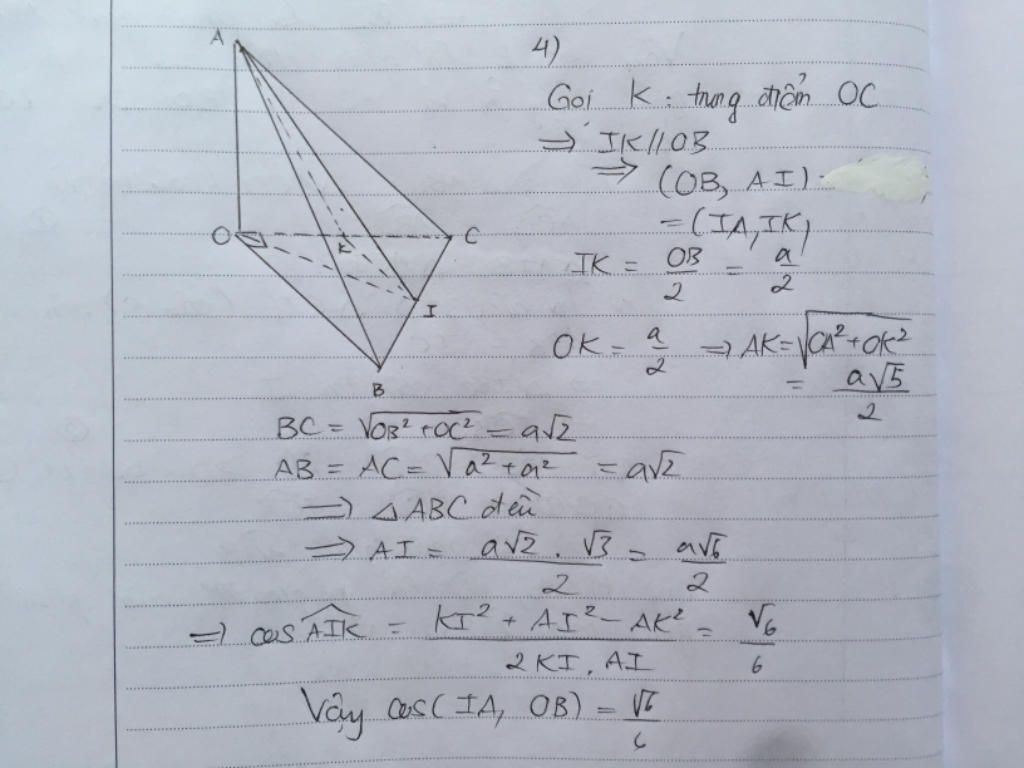 A
4)
Gọi K: trung điểm OC
⇒ IK // OB
⇒ (OB, AI)
= (IA, IK)
O K C
IK = OB/2 = a/2
I
OK = a/2 ⇒ AK = √(OA² + OK²)
= a√5/2
B
BC = √(OB² + OC²) = a√2
AB = AC = √(a² + a²) = a√2
⇒ △ABC đều
⇒ AI = a√2 . √3/2 = a√6/2
⇒ cos AIK = (KI² + AI² - AK²)/(2KI . AI) = √6/6
Vậy cos(IA, OB) = √6/6